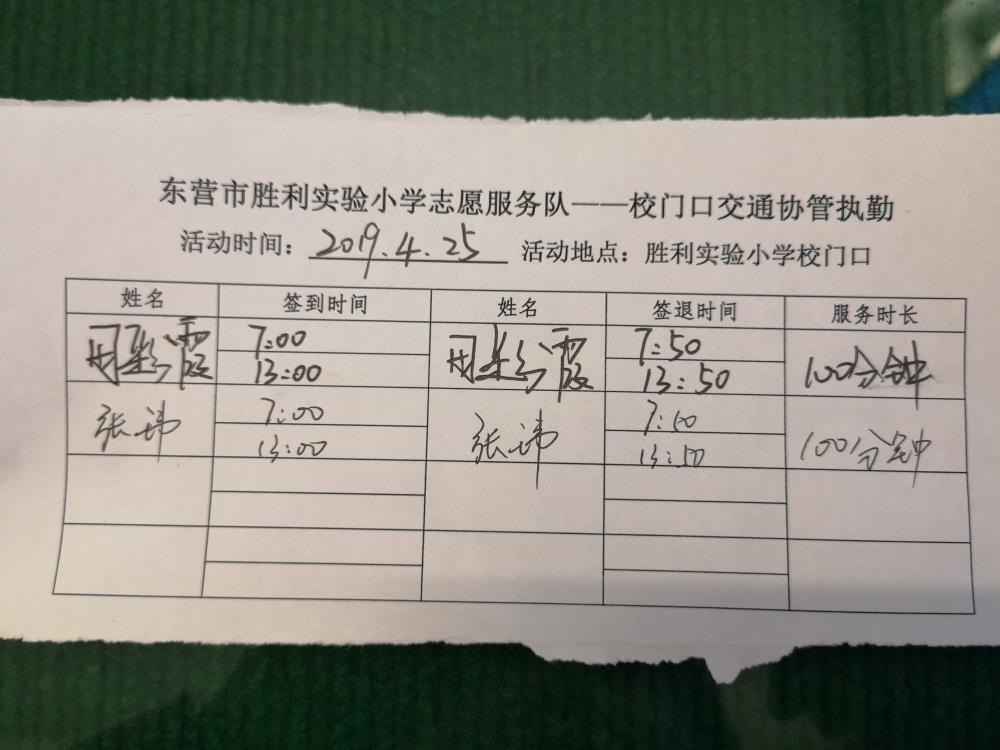 东营市胜利实验小学志愿服务队——校门口交通协管执勤
活动时间：2019.4.25 活动地点：胜利实验小学校门口
姓名 签到时间 姓名 签退时间 服务时长
7:00 7:50
13:00 13:50 100分钟
张玮 7:00 张玮 7:50 100分钟
13:00 13:50